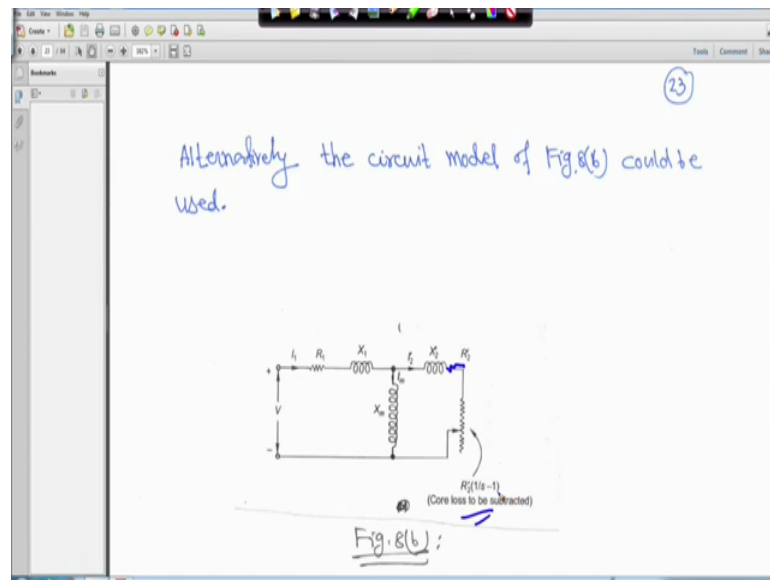 File Edit View Window Help
Create
21 / 44
182%
Tools Comment Share
Bookmarks
23
Alternatively the circuit model of Fig. 8(b) could be
used.
I1 R1 X1 I'2 X'2 R'2
+
Im
V
Xm
-
R'2(1/s-1)
(Core loss to be subtracted)
Fig. 8(b):